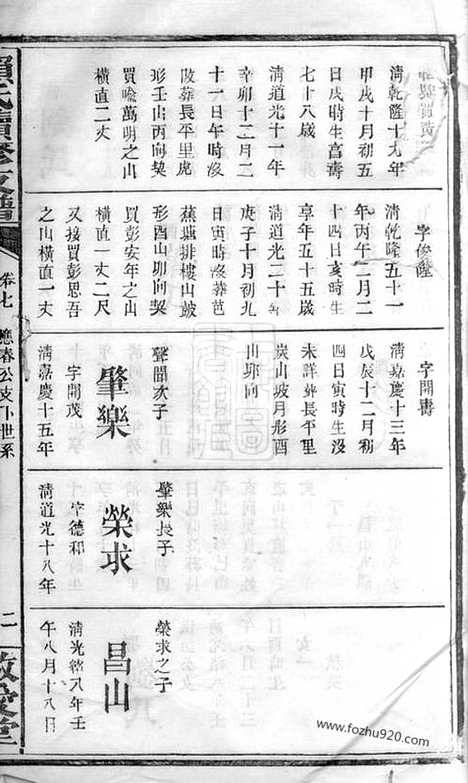 清乾隆十九年
甲戌十月初五
日戌時生享壽
七十八歲
清道光十一年
辛卯十二月二
十一日午時沒
改葬長平里虎
形壬山丙向契
買喻萬明之山
橫直二丈
字俊隆
清乾隆五十一
年丙午二月二
十四日亥時生
享年五十五歲
清道光二十年
庚子十月初九
日寅時沒葬芭
蕉塘排樓山皷
形酉山卯向契
買彭安年之山
橫直一丈二尺
又接買彭思吾
之山橫直一丈
字開壽
清嘉慶十三年
戊辰十二月初
四日寅時生沒
未詳葬長平里
炭山坡月形酉
山卯向
聲聞次子
肇樂
字開茂
清嘉慶十五年
肇樂長子
榮求
字德和
清道光十八年
榮求之子
昌山
清光緒八年壬
午八月十八日
卷七
應春公支下世系
二
敦睦堂
www.fozhu920.com